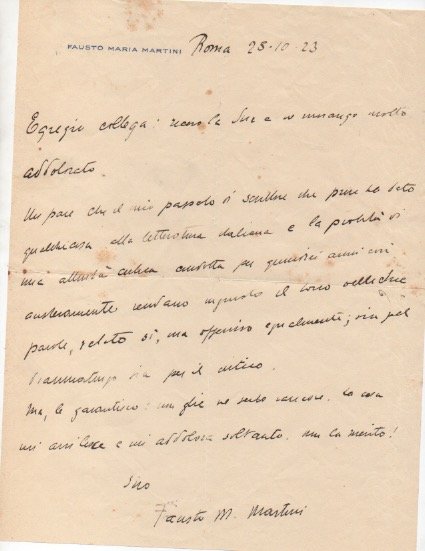 FAUSTO MARIA MARTINI Roma 28-10-23
Egregio collega: ricevo la Sua e ne rimango molto
addolorato.
Mi pare che il mio passato di scrittore che pure ha dato
qualche cosa alla letteratura italiana e la probità di
una attività critica condotta per quindici anni così
austeramente rendano ingiusto il tono delle due
parole, velato sì, ma offensivo egualmente; sia pel
drammaturgo sia per il critico.
Ma, le garantisco: non glie ne serbo rancore. La cosa
mi avvilisce e mi addolora soltanto. non la merito!
Suo
Fausto M. Martini